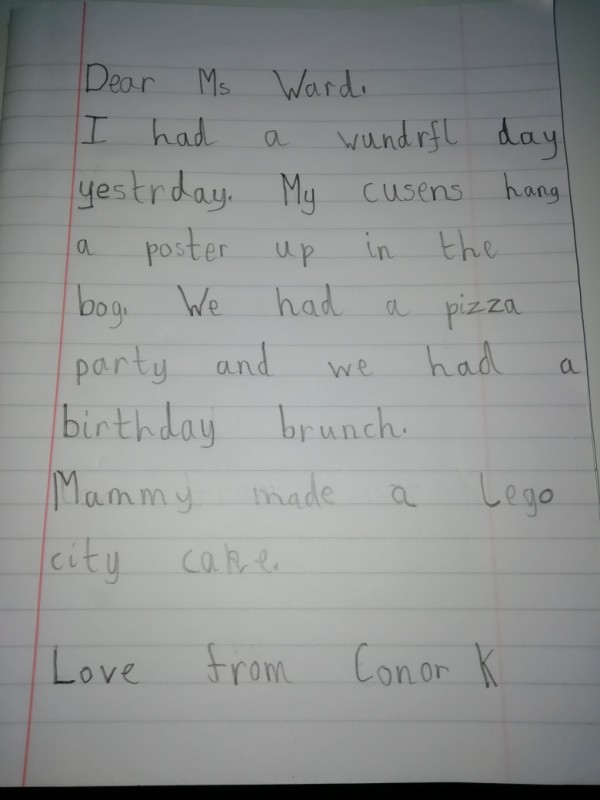 Dear Ms Ward.
I had a wundrfl day
yestrday. My cusens hang
a poster up in the
bog. We had a pizza
party and we had a
birthday brunch.
Mammy made a Lego
city cake.
Love from Conor K